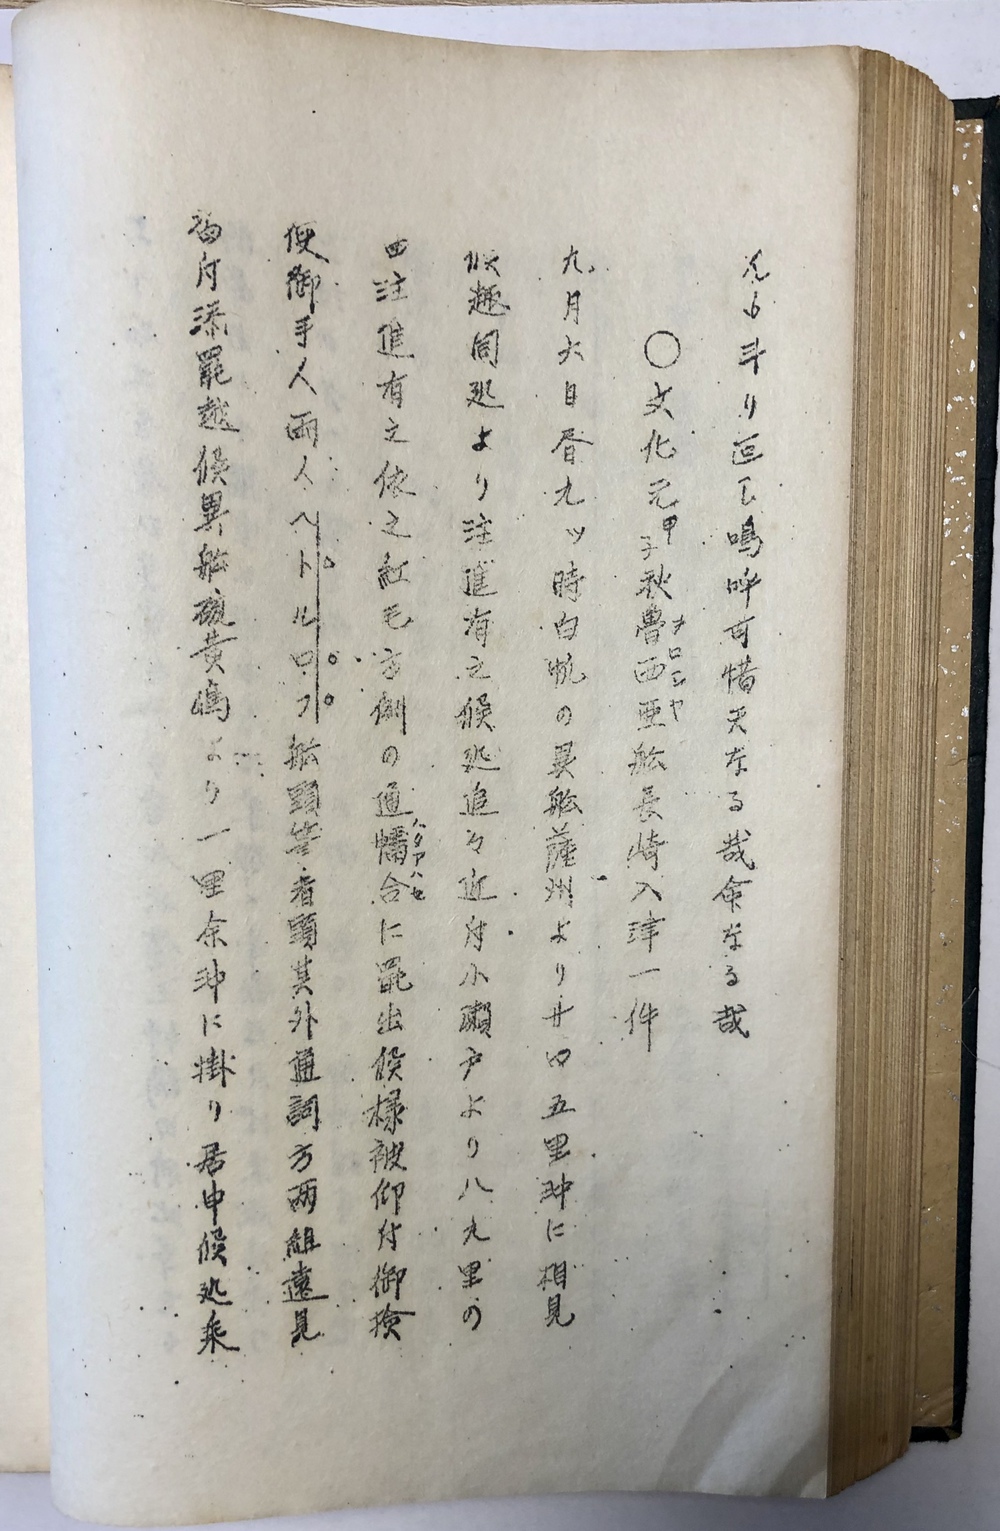 斗り巡し嗚呼可惜天なる哉命なる哉
○文化元甲子秋魯西亜舩長崎入津一件
九月六日昼九ツ時白帆の異舩薩州より廿四五里沖に相見
候趣同処より注進有之候処追々近付小瀬戸より八九里の
由注進有之依之紅毛方例の通幡合に罷出候様被仰付御検
使御手人両人ヘトルロ・フ舩頭筆者頭其外通詞方両組遠見
番付添罷越候異舩硫黄嶋より一里余沖に掛り居申候処乗